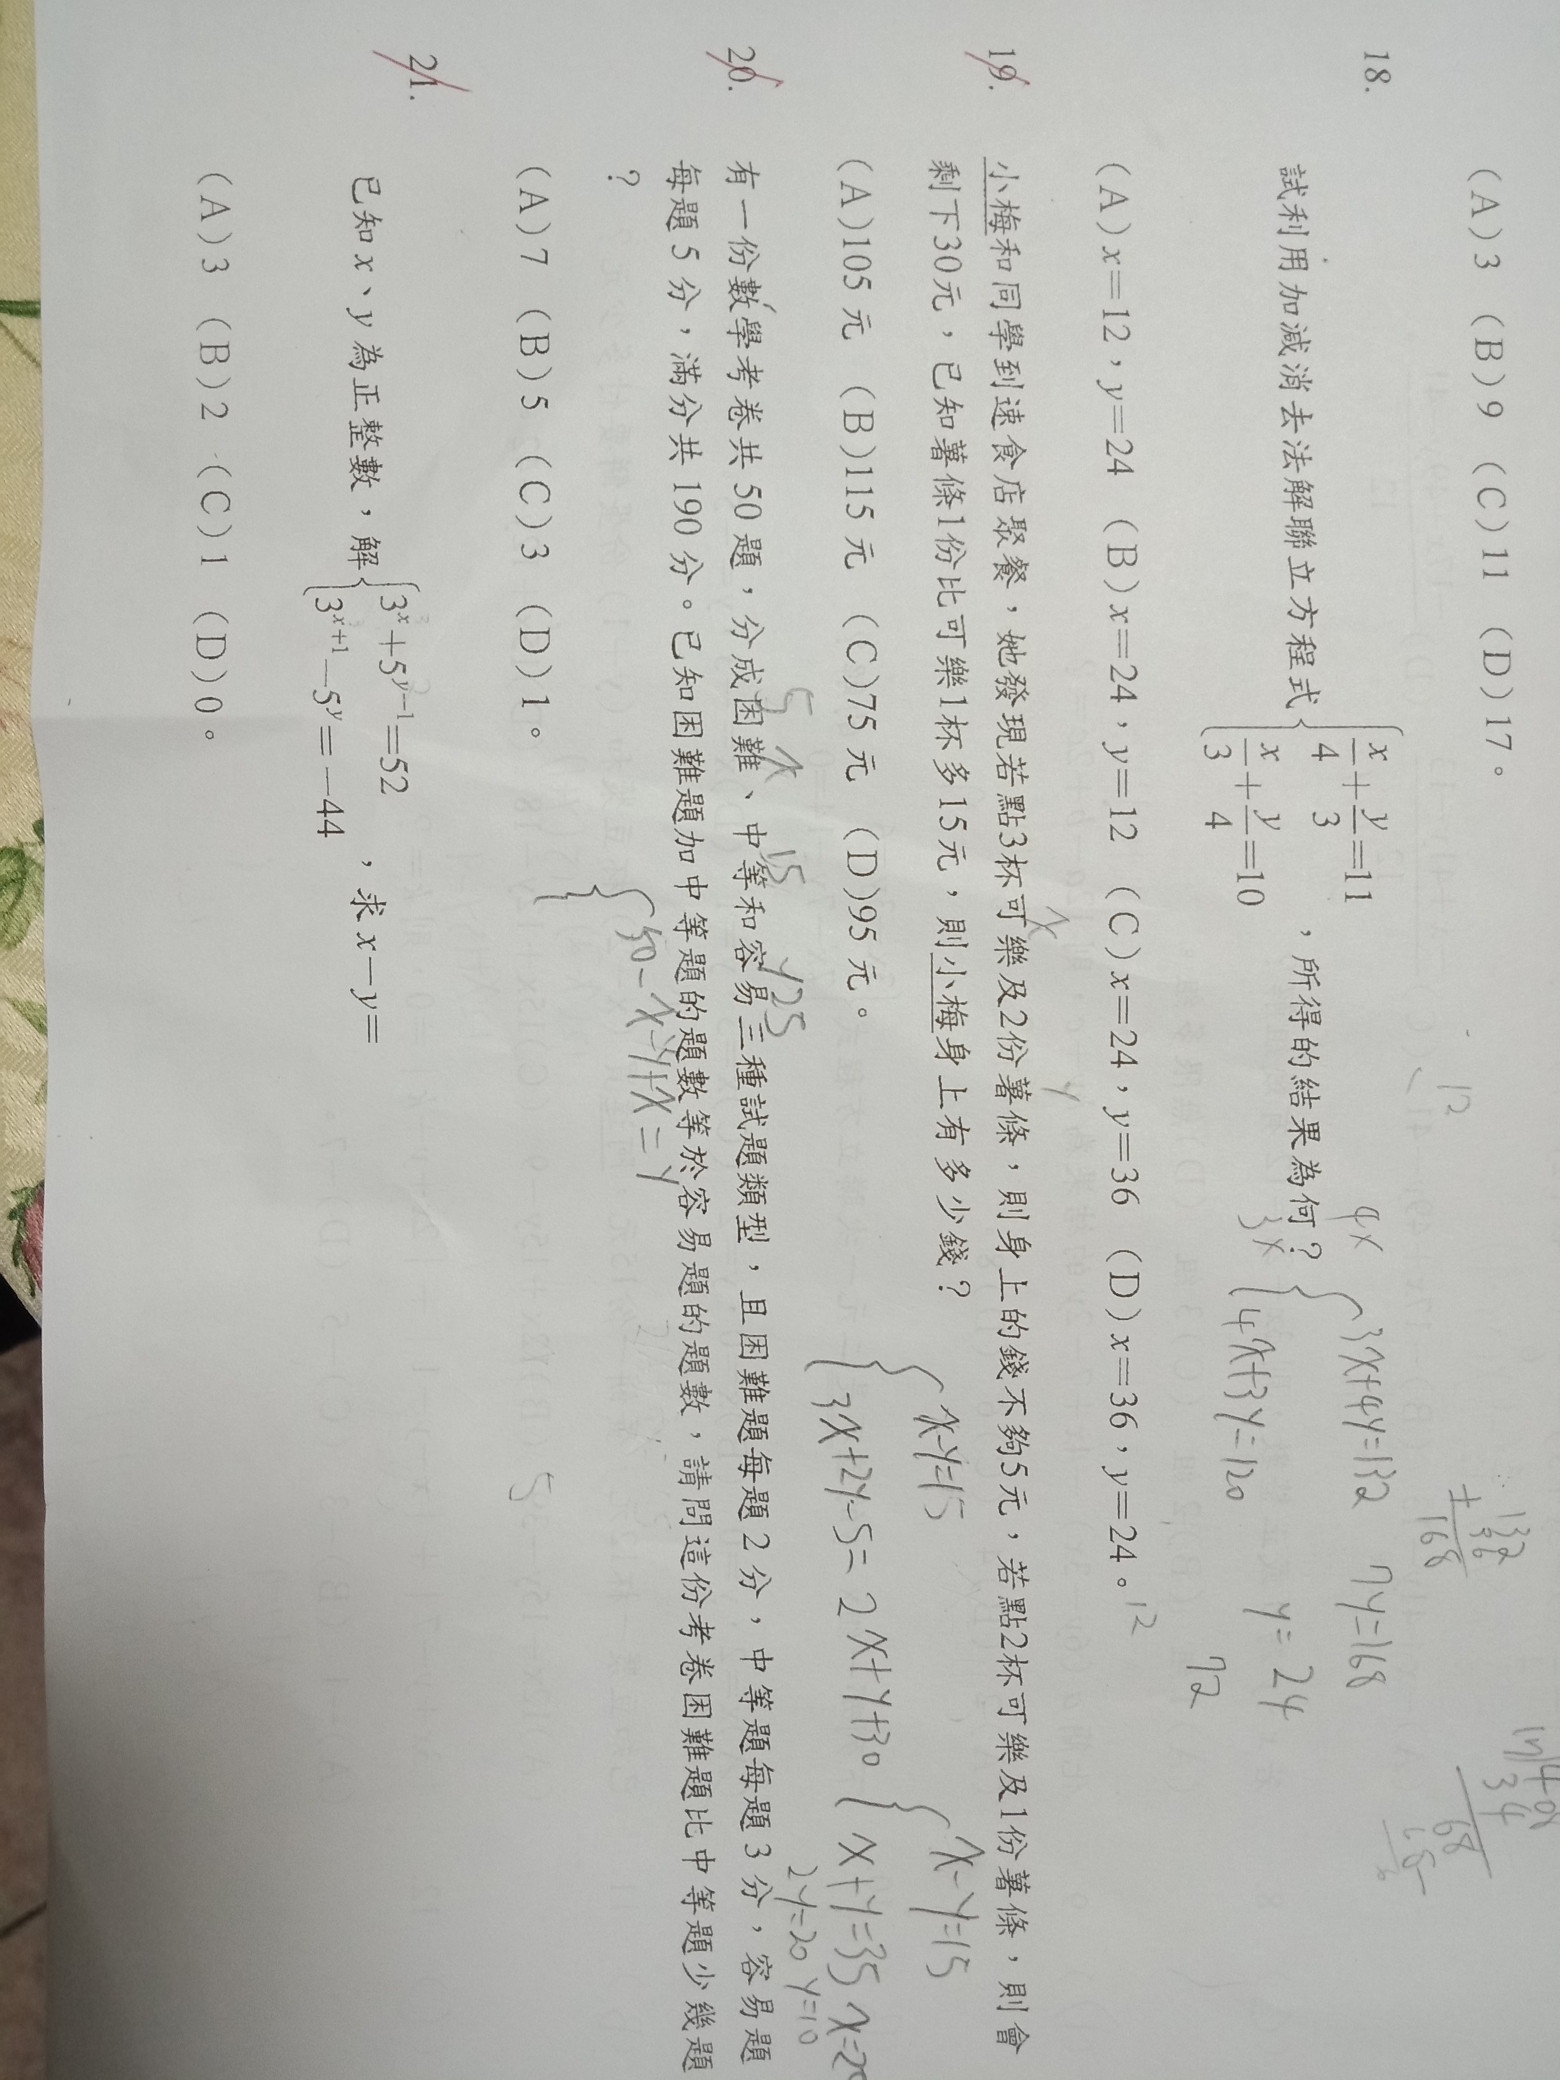 (A)3 (B)9 (C)11 (D)17。
12
132
+ 36
168
17 408
34
68
68
18. 試利用加減消去法解聯立方程式 { x/4+y/3=11 x/3+y/4=10 ,所得的結果為何?
4x
3x
{ 3x+4y=132
4x+3y=120
7y=168
y=24
72
(A)x=12,y=24 (B)x=24,y=12 (C)x=24,y=36 (D)x=36,y=24。
12
x y
19. 小梅和同學到速食店聚餐,她發現若點3杯可樂及2份薯條,則身上的錢不夠5元,若點2杯可樂及1份薯條,則會
剩下30元,已知薯條1份比可樂1杯多15元,則小梅身上有多少錢?
{ x-y=15
3x+2y-5=2x+y+30
{ x-y=15
x+y=35 x=20
2y=20 y=10
(A)105元 (B)115元 (C)75元 (D)95元。
5 x 15 y25
20. 有一份數學考卷共50題,分成困難、中等和容易三種試題類型,且困難題每題2分,中等題每題3分,容易題
每題5分,滿分共190分。已知困難題加中等題的題數等於容易題的題數,請問這份考卷困難題比中等題少幾題
?
{ 50-x-y+x=y
(A)7 (B)5 (C)3 (D)1。
21. 已知x、y為正整數,解 { 3^x+5^(y-1)=52 3^(x+1)-5^y=-44 ,求x-y=
(A)3 (B)2 (C)1 (D)0。